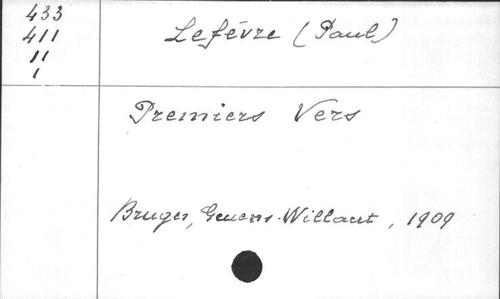 433
411
11
1
Lefévre (Paul)
Premiers Vers
Bruges, Geuens-Willaert, 1909